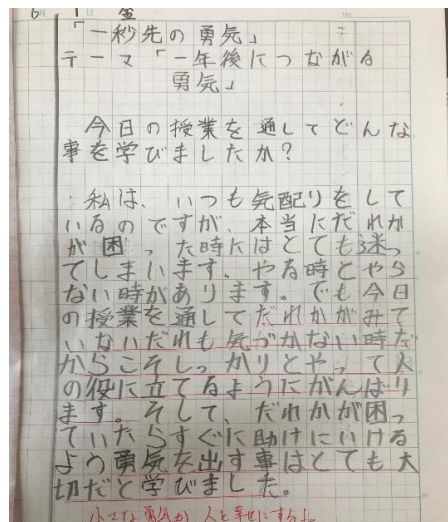 6 1 金
「一秒先の勇気」
テーマ「一年後につながる
勇気」
今日の授業を通してどんな
事を学びましたか?
私は、いつも気配りをして
いるのですが、本当にだれか
が困った時にはとても迷っ
てしまいます。やる時とやら
ない時があります。でも今日
の授業を通してだれかがみて
いないだれも気づかない時だ
からこそしっかりとやって人
の役に立てるようにがんばり
ます。そして、だれかが困っ
ていたらすぐに助けにいける
よう勇気を出す事はとても大
切だと学びました。
小さな勇気が人を幸せにする